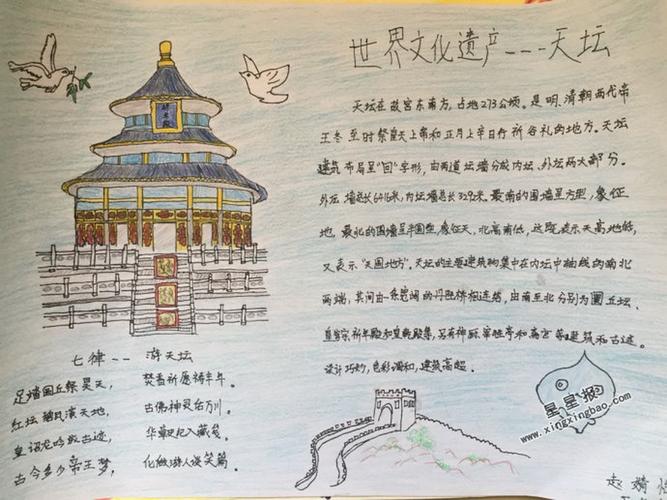 世界文化遗产---天坛
天坛在故宫东南方，占地273公顷。是明、清朝两代帝
王冬至时祭皇天上帝和正月上辛日行祈谷礼的地方。天坛
建筑布局呈“回”字形，由两道坛墙分成内坛、外坛两大部分。
外坛墙总长6416米，内坛墙总长3292米。最南的围墙呈方型，象征
地，最北的围墙呈半圆型，象征天，北高南低，这既表示天高地低，
又表示“天圆地方”。天坛的主要建筑物集中在内坛中轴线的南北
两端，其间由一条宽阔的丹陛桥相连结，由南至北分别为圜丘坛、
皇穹宇祈年殿和皇乾殿等，另有神厨、宰牲亭和斋宫等建筑和古迹。
设计巧妙，色彩调和，建筑高超。
七律--游天坛
足踏圜丘祭昊天，焚香祈愿祷丰年。
红坛 天地，古佛神灵 川。
皇 龙吟 古迹，华 入藏 。
古今多少帝王梦，化做游人谈笑篇。
星星报
www.xingxingbao.com
赵